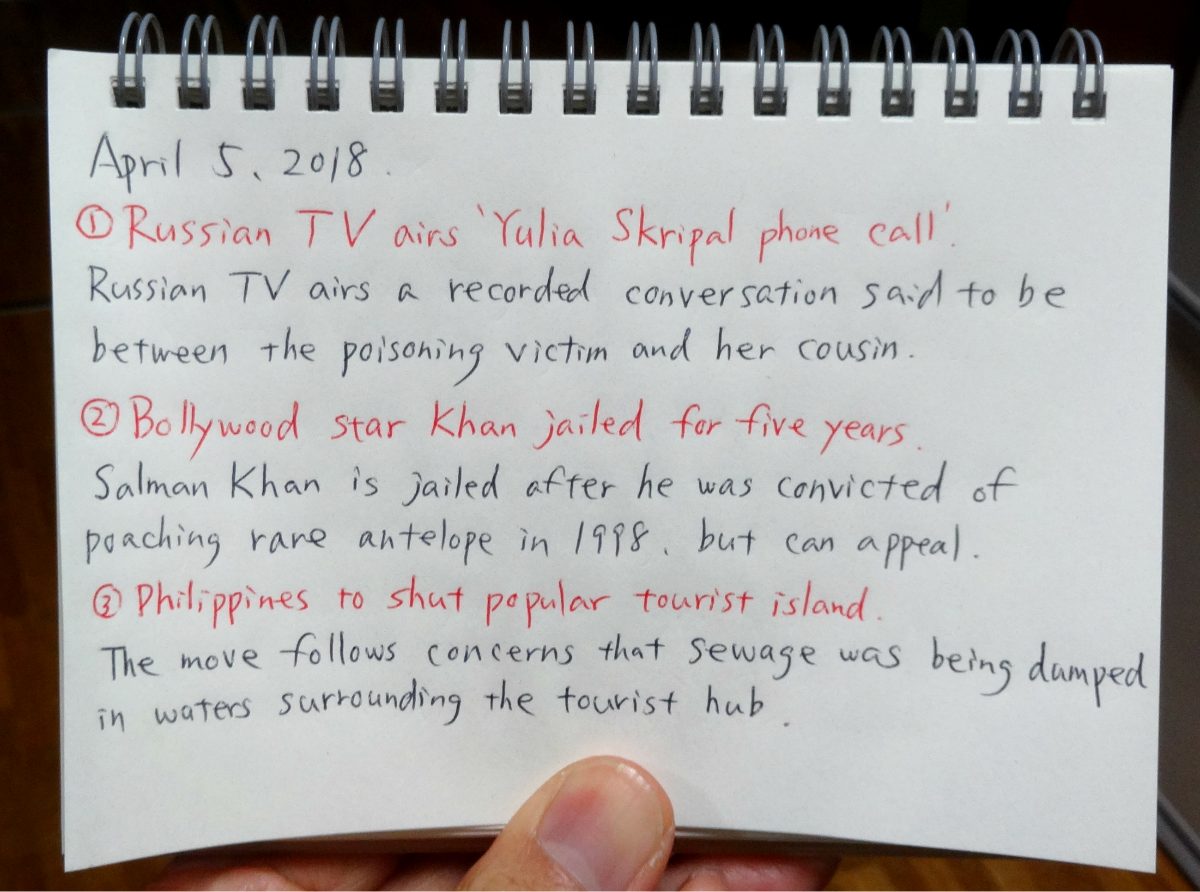 April 5, 2018.
① Russian TV airs 'Yulia Skripal phone call'.
Russian TV airs a recorded conversation said to be
between the poisoning victim and her cousin.
② Bollywood star Khan jailed for five years.
Salman Khan is jailed after he was convicted of
poaching rare antelope in 1998, but can appeal.
③ Philippines to shut popular tourist island.
The move follows concerns that sewage was being dumped
in waters surrounding the tourist hub.